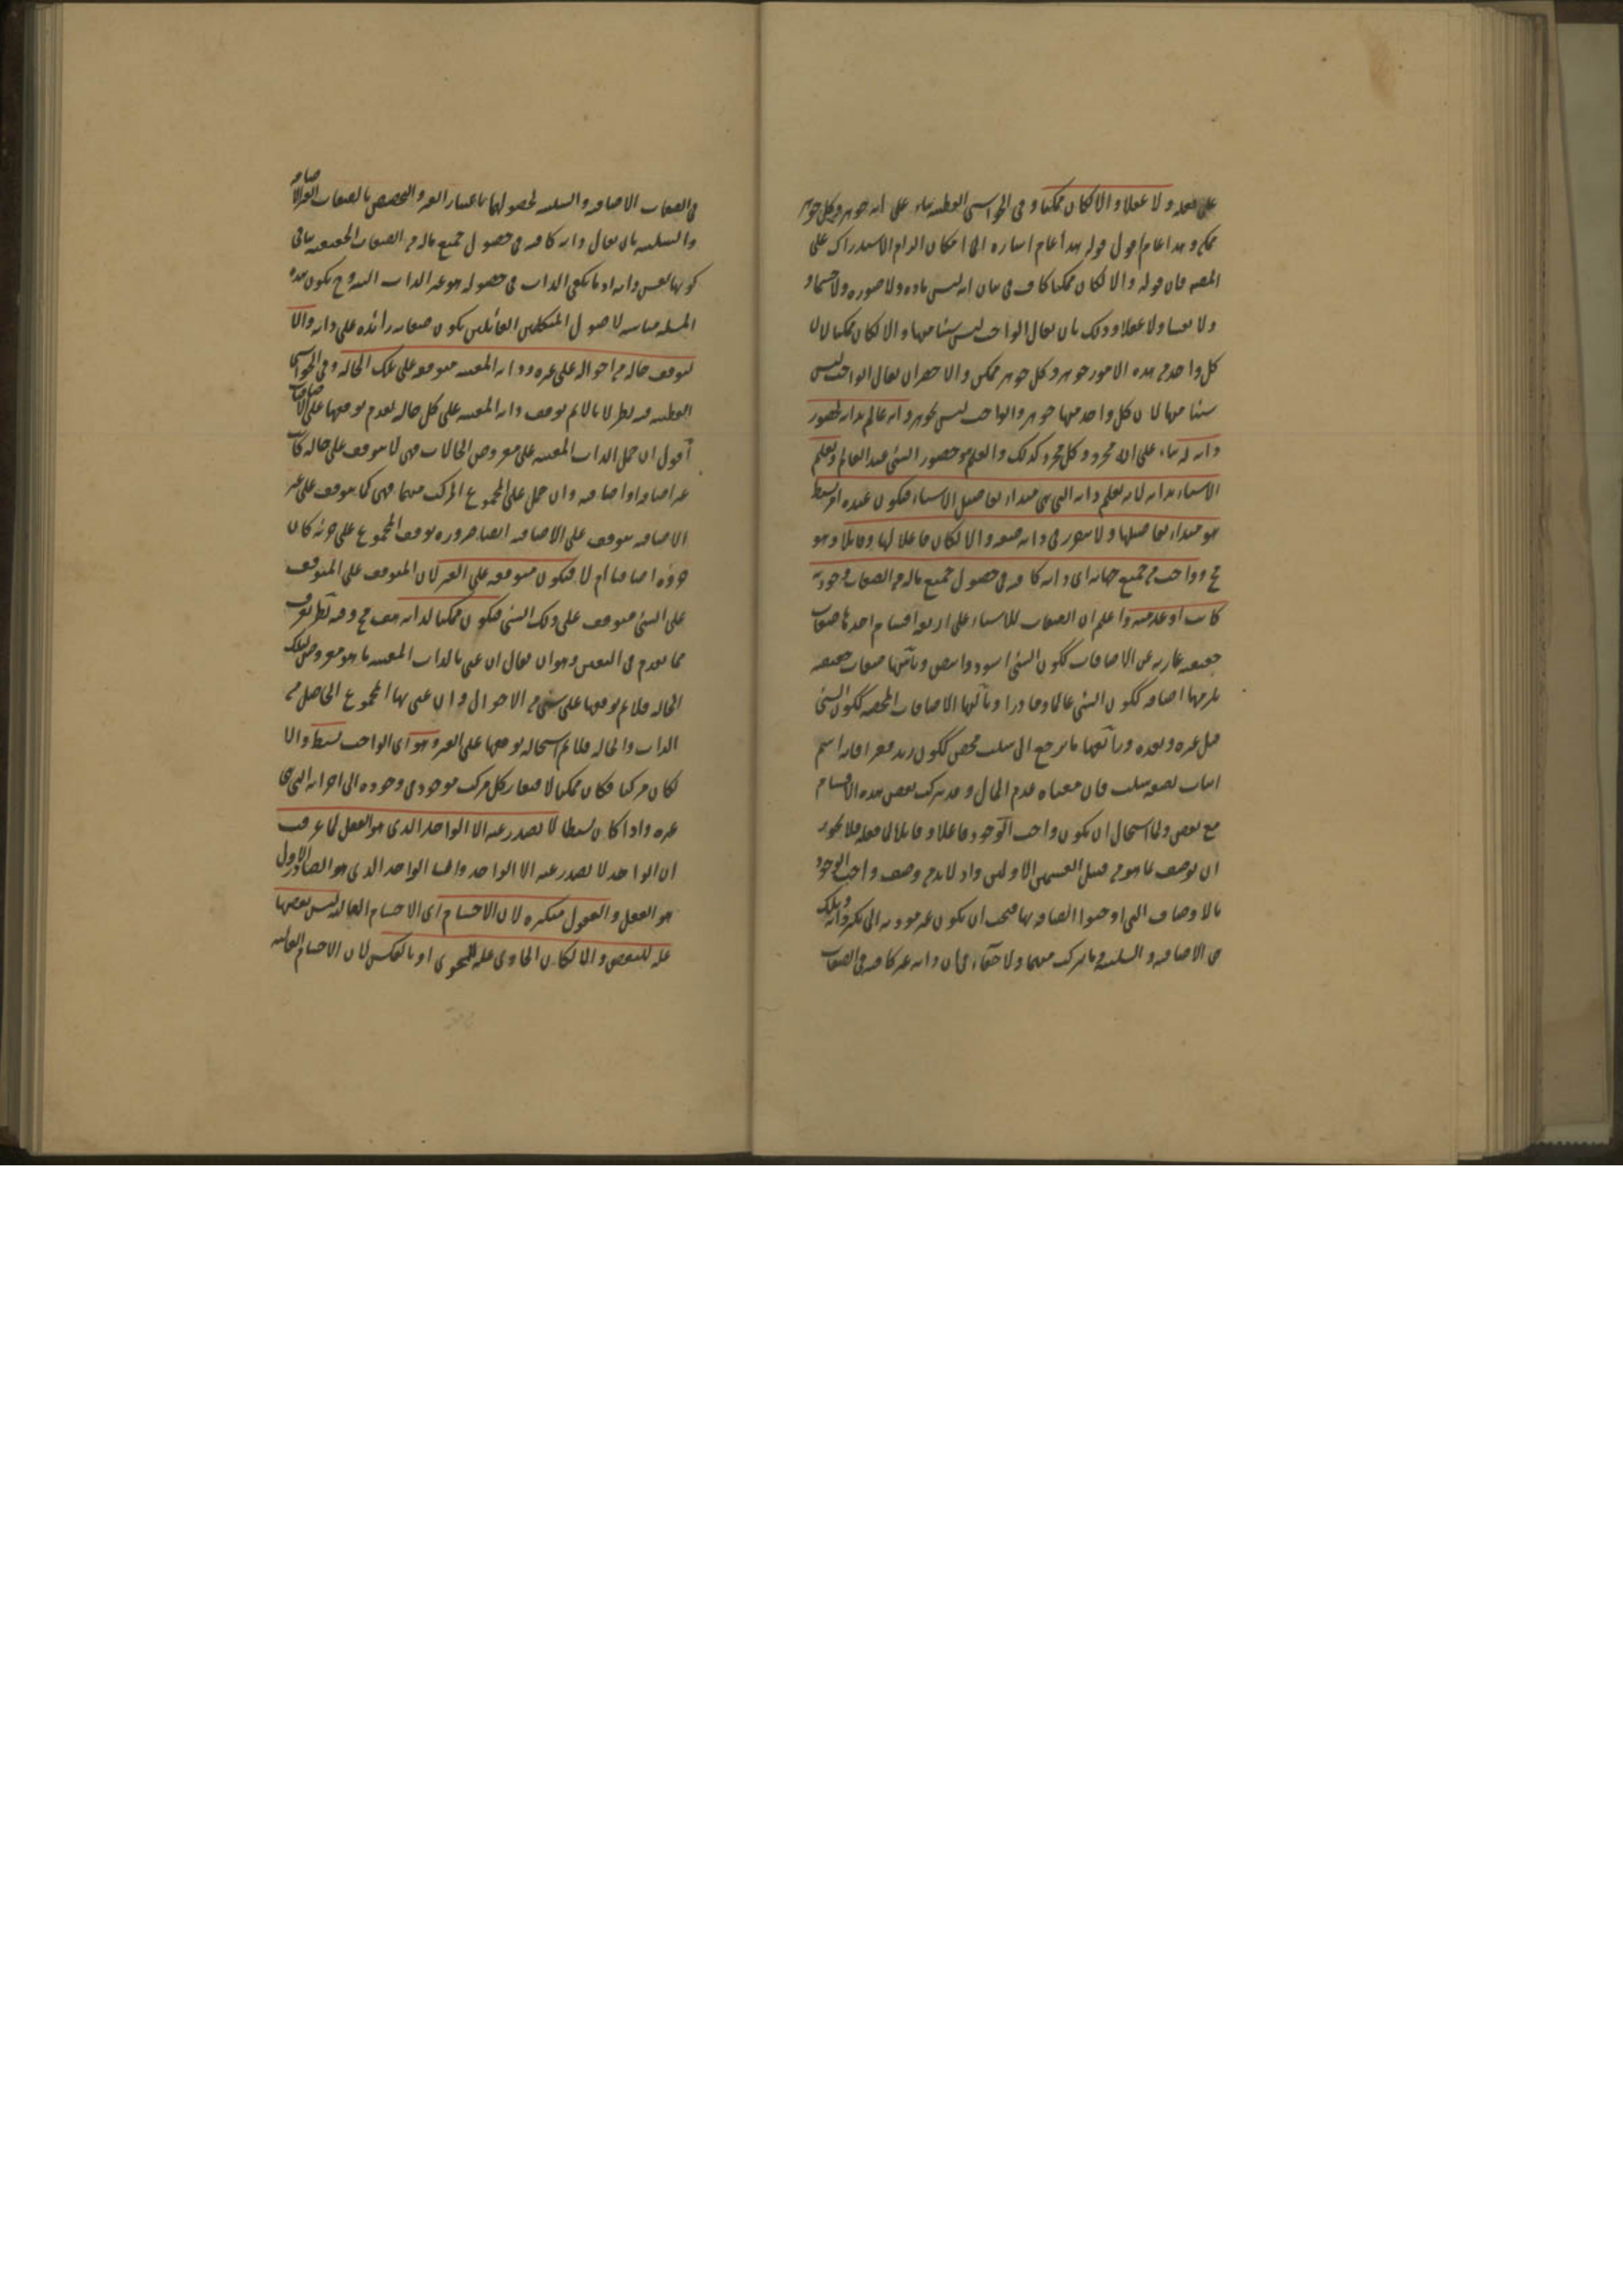 على محله ولا عقلا والا لكان ممكنا وفى الحواشى القطبيه بناء على انه جوهر وكل جوهر
ممكن وهو عام اقول قوله هو عام اشاره الى امكان ايراد الاستدراك على
المصه فان قوله والا لكان ممكنا كاف فى بيان انه ليس ماده ولا صوره ولا جسما و
ولا نفسا ولا عقلا وذلك بان يقال الواجب ليس شيئا منها والا لكان ممكنا لان
كل واحد من هذه الامور جوهر وكل جوهر ممكن والاخصر ان يقال الواجب ليس
شيئا منها لان كل واحد منها جوهر والواجب ليس بجوهر وانه عالم بذاته لحضور
ذاته له بناء على انه مجرد وكل مجرد كذلك والعلم هو حضور الشئ عند العالم ويعلم
الاشياء بذاته لانه يعلم ذاته التى هى مبداء تفاصيل الاشياء فيكون عنده امر بسيط
هو مبداء تفاصيلها ولا يتقرر فى ذاته صفه والا لكان فاعلا لها وقابلا وهو
مح وواجب من جميع جهاته اى ذاته كافيه فى حصول جميع ماله من الصفات وجوديه
كانت او عدميه واعلم ان الصفات للاشياء على اربعه اقسام احدها صفات
حقيقيه عاريه عن الاضافات ككون الشئ اسود وابيض وثانيها صفات حقيقيه
يلزمها اضافه ككون الشئ عالما وقادرا وثالثها الاضافات المحضه ككون الشئ
قبل غيره وبعده ورابعها ما يرجع الى سلب محض ككون زيد فقيرا فانه اسم
اثبات لصفه سلب فان معناه عدم المال وقد يتركب بعض هذه الاقسام
مع بعض ولما استحال ان يكون واجب الوجود فاعلا وقابلا لما فعله فلا يجوز
ان يوصف بما هو من قبيل القسمين الاولين واذ لا بد من وصف واجب الوجود
بالاوصاف التى اوجبوا اتصافه بها فيجب ان يكون غير موديه الى تكثر ذاته وتلك
هى الاضافيه والسلبيه وما يتركب منهما ولا خفاء فى ان ذاته غير كافيه فى الصفات
فى الصفات الاضافيه والسلبيه لحصولهما باعتبار الغير والتخصيص بالصفات الغير الاضافيه
والسلبيه بان يقال ذاته كافيه فى حصول جميع ماله من الصفات الحقيقيه ينافى
كونها نفس ذاته اذ ما يكفى الذات فى حصوله هو غير الذات البته وح يكون هذه
المسئله مناسبه لاصول المتكلمين القائلين بكون صفاته زائده على ذاته والا
لتوقف حاله من احواله على غيره وذاته المعينه متوقفه على تلك الحاله وفى الحواشى
القطبيه فيه نظر لانا لا نم توقف ذاته المعينه على كل حاله لعدم توقفها على الاضافات
اقول ان حمل الذات المعينه على معروض الحالات فهى لا يتوقف على حاله كانت
غير اضافه او اضافه وان حمل على المجموع المركب منهما فهى كما يتوقف على غير
الاضافه يتوقف على الاضافه ايضا ضروره توقف المجموع على جزئه كان
جزؤه اضافيا ام لا فيكون متوقفه على الغير لان المتوقف على المتوقف
على الشئ متوقف على ذلك الشئ فيكون ممكنا لذاته هف مح وفيه نظر يعرف
مما تقدم فى النفس وهو ان يقال ان عنى بالذات المعينه ما هو معروض لتلك
الحاله فلا نم توقفها على شئ من الاحوال وان عنى بها المجموع الحاصل من
الذات والحاله فلا نم استحاله توقفها على الغير وهو اى الواجب بسيط والا
لكان مركبا فكان ممكنا لافتقار كل مركب موجود فى وجوده الى اجزائه التى هى
غيره واذا كان بسيطا لا يصدر عنه الا الواحد الذى هو العقل لما عرفت
ان الواحد لا يصدر عنه الا الواحد وايضا الواحد الذى هو الصادر الاول
هو العقل والعقول متكثره لان الاجسام اى الاجسام العاليه ليس بعضها
عله للبعض والا لكان الحاوى عله للمحوى او بالعكس لان الاجسام العاليه